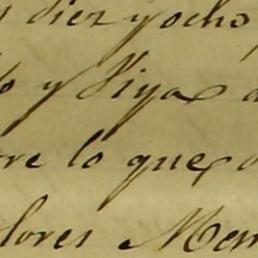 diez y ocho
y Diya
re lo que
lores Men